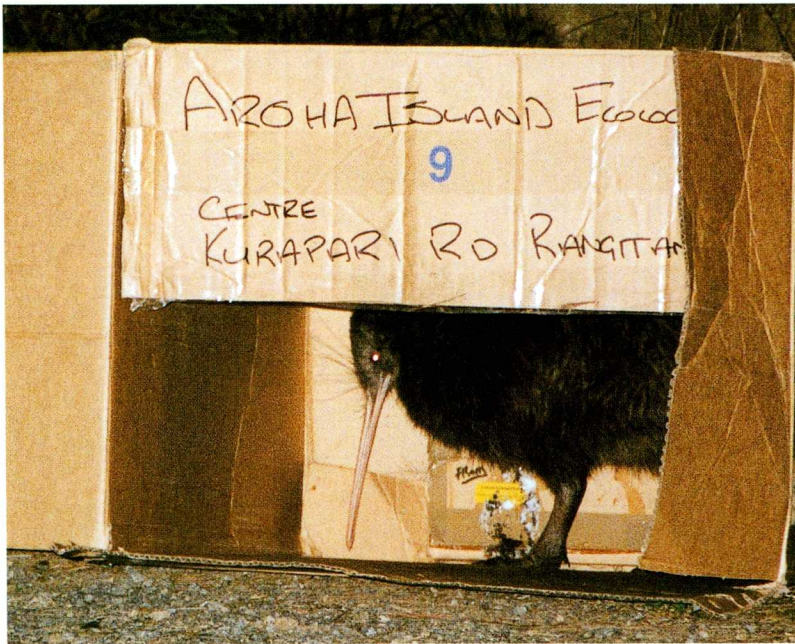 AROHA ISLAND ECOLOG
9
CENTRE
KURAPARI RD RANGITAN
FROM